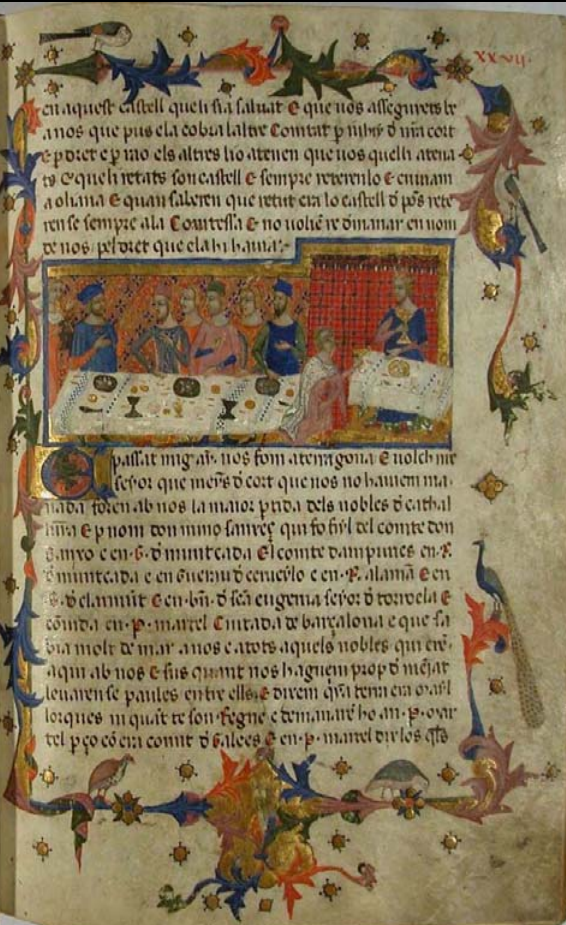 xxvij.
en aquest castell queli sia saluat E que uos assegurets be
a nos que pus ela cobra laltre Comtat p juhij d nra cort
E p dret e p rao els altres lio atenen que uos quelli atena
ts E queli retats son castell E sempre reterenlo E enuiam
a ohana E quan saberen que retut era lo castell d pos rete
ren se sempre ala Comtessa E no uolgē re dmanar en nom
de nos pel dret que ela hi hauia
E passat mig añ. nos fom a terragona E uolch nr̄e
seyor que meyns d cort que nos no hauiem ma
nada foren ab nos la maior ptida dels nobles d cathal
huya E p nom don nuno sanxeç qui fo fiyl del comte don
Sanxo e en .G. d muntcada El comte dampuries en .R.
d muntcada e en Guerau d cerueylo e en .R. alama E en
.G. d claramūt E en .bn. d sca eugenia seyor d torroela E
couida en .P. martel Ciutada de barçalona e que sa
bia molt de mar a nos e a tots aquels nobles qui erē
aqui ab nos E sus quant nos haguem prop d mējat
leuaren se paules entre ells E direm qna terra era mayl
lorques ni quāt te son Regne e demanarē ho an .P. mar
tel p ço co era comit d Galees E en .P. martel dix los